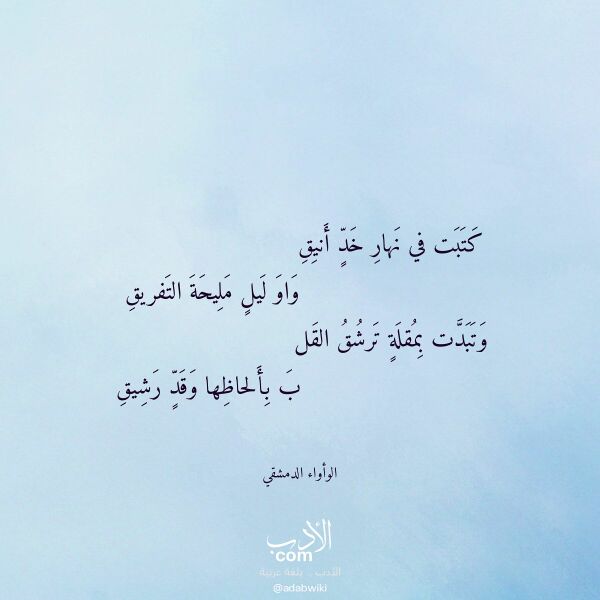 كَتَبَت في نَهارِ خَدٍّ أَنيقِ
وَاوَ لَيلٍ مَلِيحَةَ التَفريقِ
وَتَبَدَّت بِمُقلَةٍ تَرشُقُ القَل
بَ بِأَلحاظِها وَقَدٍّ رَشِيقِ
الوأواء الدمشقي
الأدب
com
الأدب .. بلغة عربية
@adabwiki